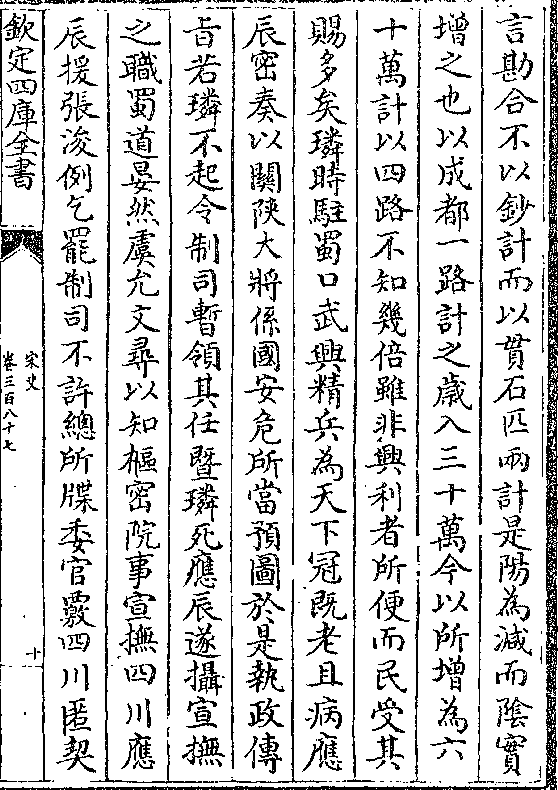 言勘合不以鈔計而以貫石匹兩計是陽為減而隂實
增之也以成都一路計之歲入三十萬今以所增為六
十萬計以四路不知幾倍雖非興利者所便而民受其
賜多矣璘時駐蜀口武興精兵為天下冠既老且病應
辰密奏以關陜大將係國安危所當預圖於是執政傳
㫖若璘不起令制司暫領其任暨璘死應辰遂攝宣撫
之職蜀道晏然虞允文尋以知樞密院事宣撫四川應
辰援張浚例乞罷制司不許總所牒委官覈四川匿契
欽定四庫全書
宋史
卷三百八十七
十